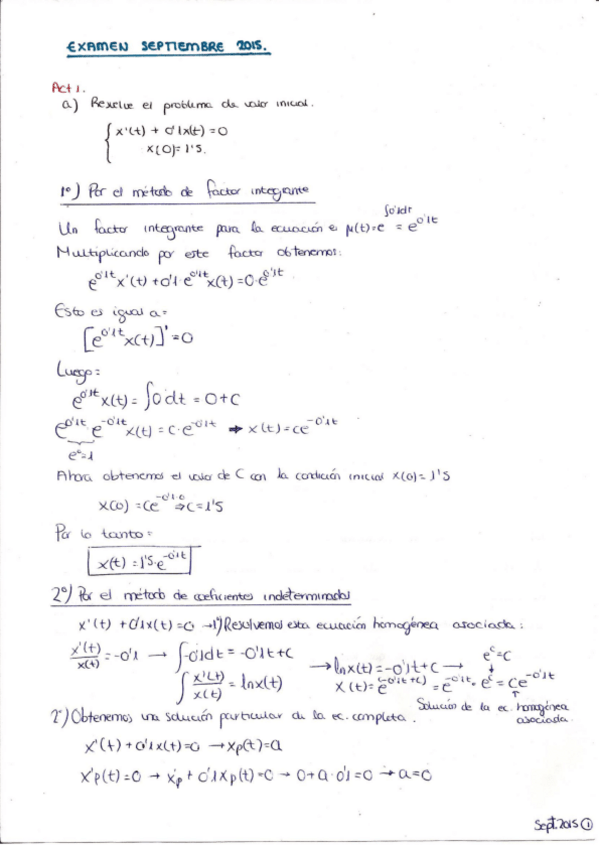 EXAMEN SEPTIEMBRE 2015.
Act 1.
a) Resolve el problema de valor inicial.
x'(t) + 0'1x(t) = 0
x(0) = 1'5.
1º) Por el método de factor integrante
Un factor integrante para la ecuación es μ(t) = e^∫0'1dt = e^0'1t
Multiplicando por este factor obtenemos:
e^0'1t x'(t) + 0'1·e^0'1t x(t) = 0·e^0'1t
Esto es igual a:
[e^0'1t x(t)]' = 0
Luego:
e^0'1t x(t) = ∫0 dt = 0 + C
e^0'1t e^-0'1t x(t) = C·e^-0'1t → x(t) = ce^-0'1t
e^0 = 1
Ahora obtenemos el valor de C con la condición inicial x(0) = 1'5
x(0) = Ce^-0'1·0 ⇒ C = 1'5
Por lo tanto:
x(t) = 1'5·e^-0'1t
2º) Por el método de coeficientes indeterminados
x'(t) + 0'1x(t) = 0 → 1º) Resolvemos esta ecuación homogénea asociada:
x'(t)/x(t) = -0'1 → ∫-0'1dt = -0'1t + C
∫x'(t)/x(t) = ln x(t)
→ ln x(t) = -0'1t + C → e^c = C
x(t) = e^(-0'1t + C) = e^-0'1t · e^c = Ce^-0'1t
Solución de la ec. homogénea asociada.
2º) Obtenemos una solución particular de la ec. completa.
x'(t) + 0'1x(t) = 0 → xp(t) = a
x'p(t) = 0 → x'p + 0'1xp(t) = 0 → 0 + a·0'1 = 0 → a = 0
Sept. 2015 1